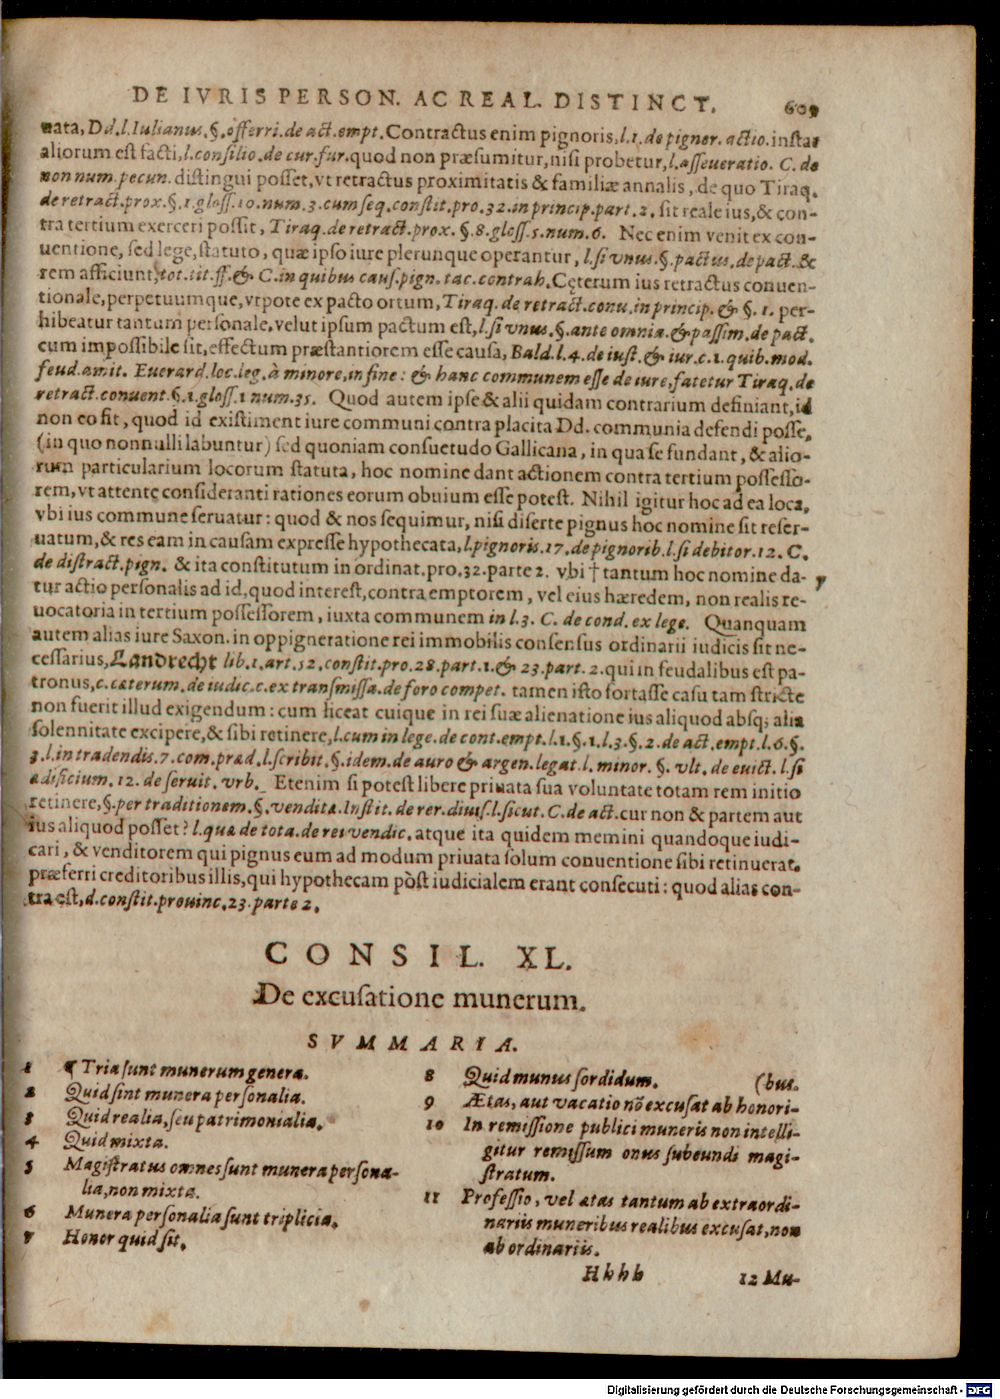 DE IVRIS PERSON. AC REAL. DISTINCT. 609
nata, Dd.l.Iulianus.§.offerri.de act.empt. Contractus enim pignoris, l.1.de pigner. actio. instar
aliorum est facti, l.consilio.de cur.fur. quod non præsumitur, nisi probetur, l.asseueratio. C. de
non num.pecun. distingui posset, vt retractus proximitatis & familiæ annalis, de quo Tiraq.
de retract.prox.§.1.gloss.10.num.3.cum seq.constit.pro.32.in princip.part.2. sit reale ius, & con-
tra tertium exerceri possit, Tiraq.de retract.prox. §.8.gloss.5.num.6. Nec enim venit ex con-
uentione, sed lege, statuto, quæ ipso iure plerunque operantur, l.si vnus.§.pactus.de pact.&
rem afficiunt, tot.tit.ff.& C.in quibus caus.pign. tac.contrah. Cęterum ius retractus conuen-
tionale, perpetuumque, vtpote ex pacto ortum, Tiraq. de retract.conu.in princip. & §. 1. per-
hibeatur tantum personale, velut ipsum pactum est, l.si vnus.§.ante omnia.& passim.de pact.
cum impossibile sit, effectum præstantiorem esse causa, Bald.l.4.de iust.& iur.c.1.quib.mod.
feud.amit. Euerard.loc.leg.à minore, in fine: & hanc communem esse de iure, fatetur Tiraq.de
retract.conuent.§.1.gloss.1 num.35. Quod autem ipse & alii quidam contrarium definiant, id
non eo fit, quod id existiment iure communi contra placita Dd. communia defendi posse,
(in quo nonnulli labuntur) sed quoniam consuetudo Gallicana, in qua se fundant, & alio-
rum particularium locorum statuta, hoc nomine dant actionem contra tertium possesso-
rem, vt attentę consideranti rationes eorum obuium esse potest. Nihil igitur hoc ad ea loca,
vbi ius commune seruatur: quod & nos sequimur, nisi diserte pignus hoc nomine sit reser-
uatum, & res eam in causam expresse hypothecata, l.pignoris.17.de pignorib.l.si debitor.12. C.
de distract.pign. & ita constitutum in ordinat.pro.32.parte 2. vbi † tantum hoc nomine da- 7
tur actio personalis ad id, quod interest, contra emptorem, vel eius hæredem, non realis re-
uocatoria in tertium possessorem, iuxta communem in l.3. C. de cond.ex lege. Quanquam
autem alias iure Saxon. in oppigneratione rei immobilis consensus ordinarii iudicis sit ne-
cessarius, Landrecht lib.1.art.52.constit.pro.28.part.1.& 23.part.2. qui in feudalibus est pa-
tronus, c.cæterum.de iudic.c.ex transmissa.de foro compet. tamen isto fortasse casu tam stricte
non fuerit illud exigendum: cum liceat cuique in rei suæ alienatione ius aliquod absq; alia
solennitate excipere, & sibi retinere, l.cum in lege.de cont.empt.l.1.§.1.l.3.§.2.de act.empt.l.6.§.
3.l.in tradendis.7.com.præd.l.scribit.§.idem.de auro & argen.legat.l.minor.§.vlt.de euict.l.si
ædificium.12.de seruit.vrb. Etenim si potest libere priuata sua voluntate totam rem initio
retinere, §.per traditionem.§.venditæ.Instit.de rer.diuis.l.sicut.C.de act. cur non & partem aut
ius aliquod posset? l.quæ de tota.de rei vendic. atque ita quidem memini quandoque iudi-
cari, & venditorem qui pignus eum ad modum priuata solum conuentione sibi retinuerat,
præferri creditoribus illis, qui hypothecam pòst iudicialem erant consecuti: quod alias con-
tra est, d.constit.prouinc.23.parte 2.
CONSIL. XL.
De excusatione munerum.
SVMMARIA.
1 ¶ Tria sunt munerum genera.
2 Quid sint munera personalia.
3 Quid realia, seu patrimonialia.
4 Quid mixta.
5 Magistratus omnes sunt munera persona-
lia, non mixta.
6 Munera personalia sunt triplicia.
7 Honor quid sit.
8 Quid munus sordidum. (bus.
9 Ætas, aut vacatio nõ excusat ab honori-
10 In remissione publici muneris non intelli-
gitur remissum onus subeundi magi-
stratum.
11 Professio, vel ætas tantum ab extraordi-
nariis muneribus realibus excusat, non
ab ordinariis.
Hhhh 12 Mu-
Digitalisierung gefördert durch die Deutsche Forschungsgemeinschaft - DFG